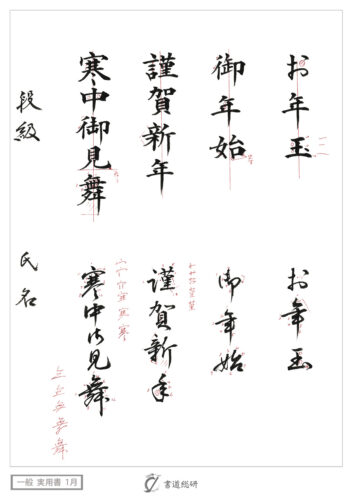 お年玉
御年始
謹賀新年
寒中御見舞
段級
お年玉
御年始
謹賀新年
寒中御見舞
氏名
一般 実用書 1月
書道総研